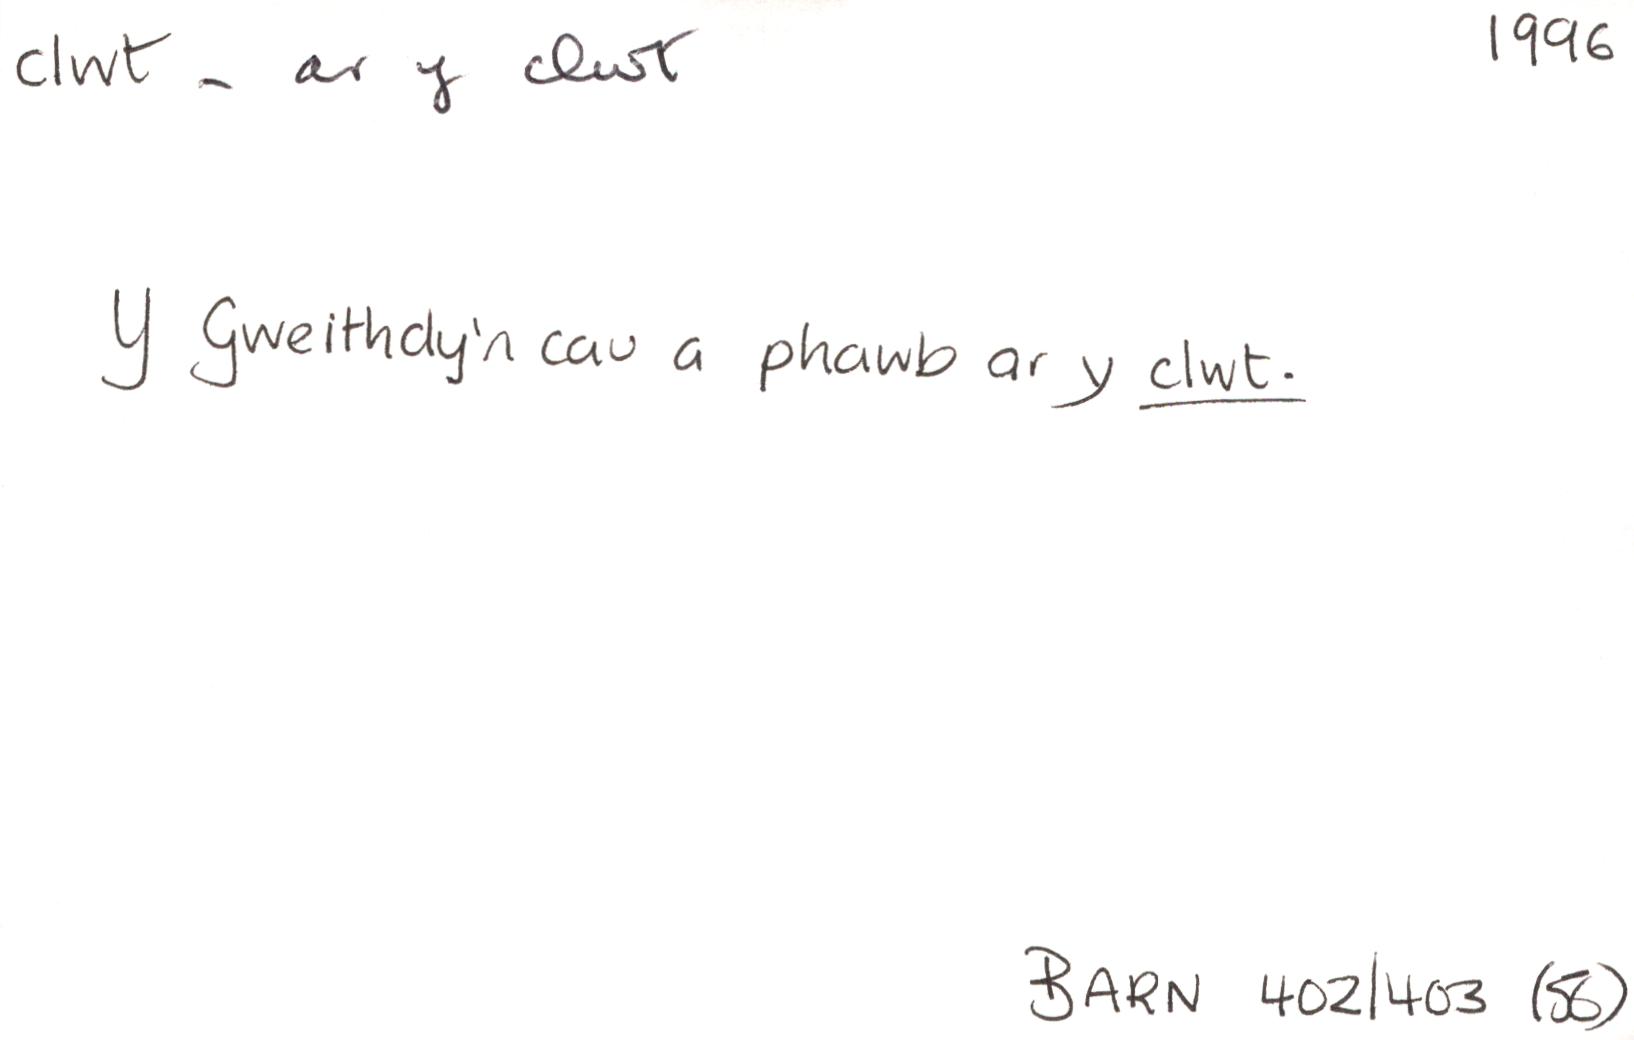 clwt - ar y clwt 1996
Y Gweithdy'n cau a phawb ar y clwt.
BARN 402/403 (56)